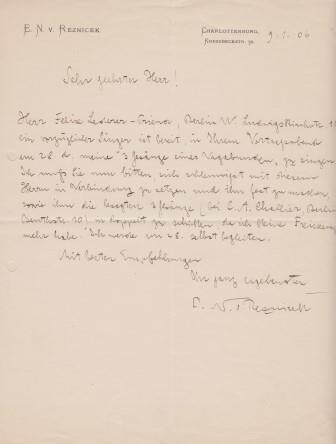 E. N. v. Reznicek
Charlottenburg,
Knesebeckstr. 32.
9.1.06
Sehr geehrter Herr!
Herr Felix Lederer-Prina, Berlin W. Ludwigkirchstr. 11
ein vorzüglicher Sänger ist bereit, in Ihrem Vortragsabend
am 28. d. meine "3 Gesänge eines Vagabunden" zu singen
Ich muß Sie nun bitten, sich schleunigst mit diesem
Herrn in Verbindung zu setzen und ihn fest zu machen,
sowie ihm die besagten 3 Gesänge (bei C. A. Challier, Berlin
Beuthstr. 10) in doppelt zu schicken, da ich keine
mehr habe. Ich werde am 28. selbst begleiten.
Mit besten Empfehlungen
Ihr ganz ergebenster
E. N. v. Reznicek